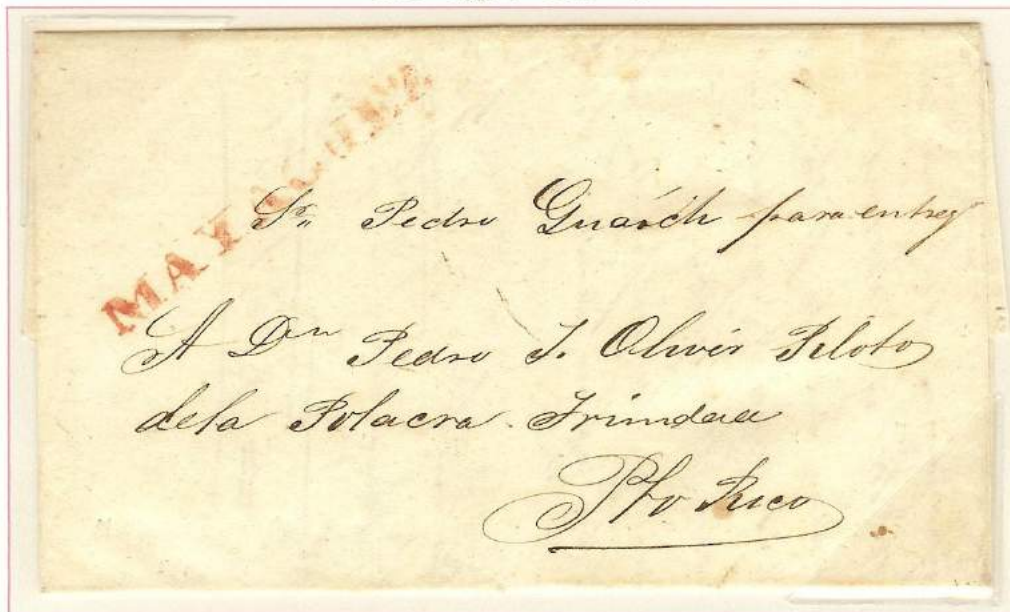 MAYAGUEZ
Sr. Pedro Guarch para entreg
A Dn Pedro J. Oliver Piloto
dela Polacra Trinidad
Pto Rico